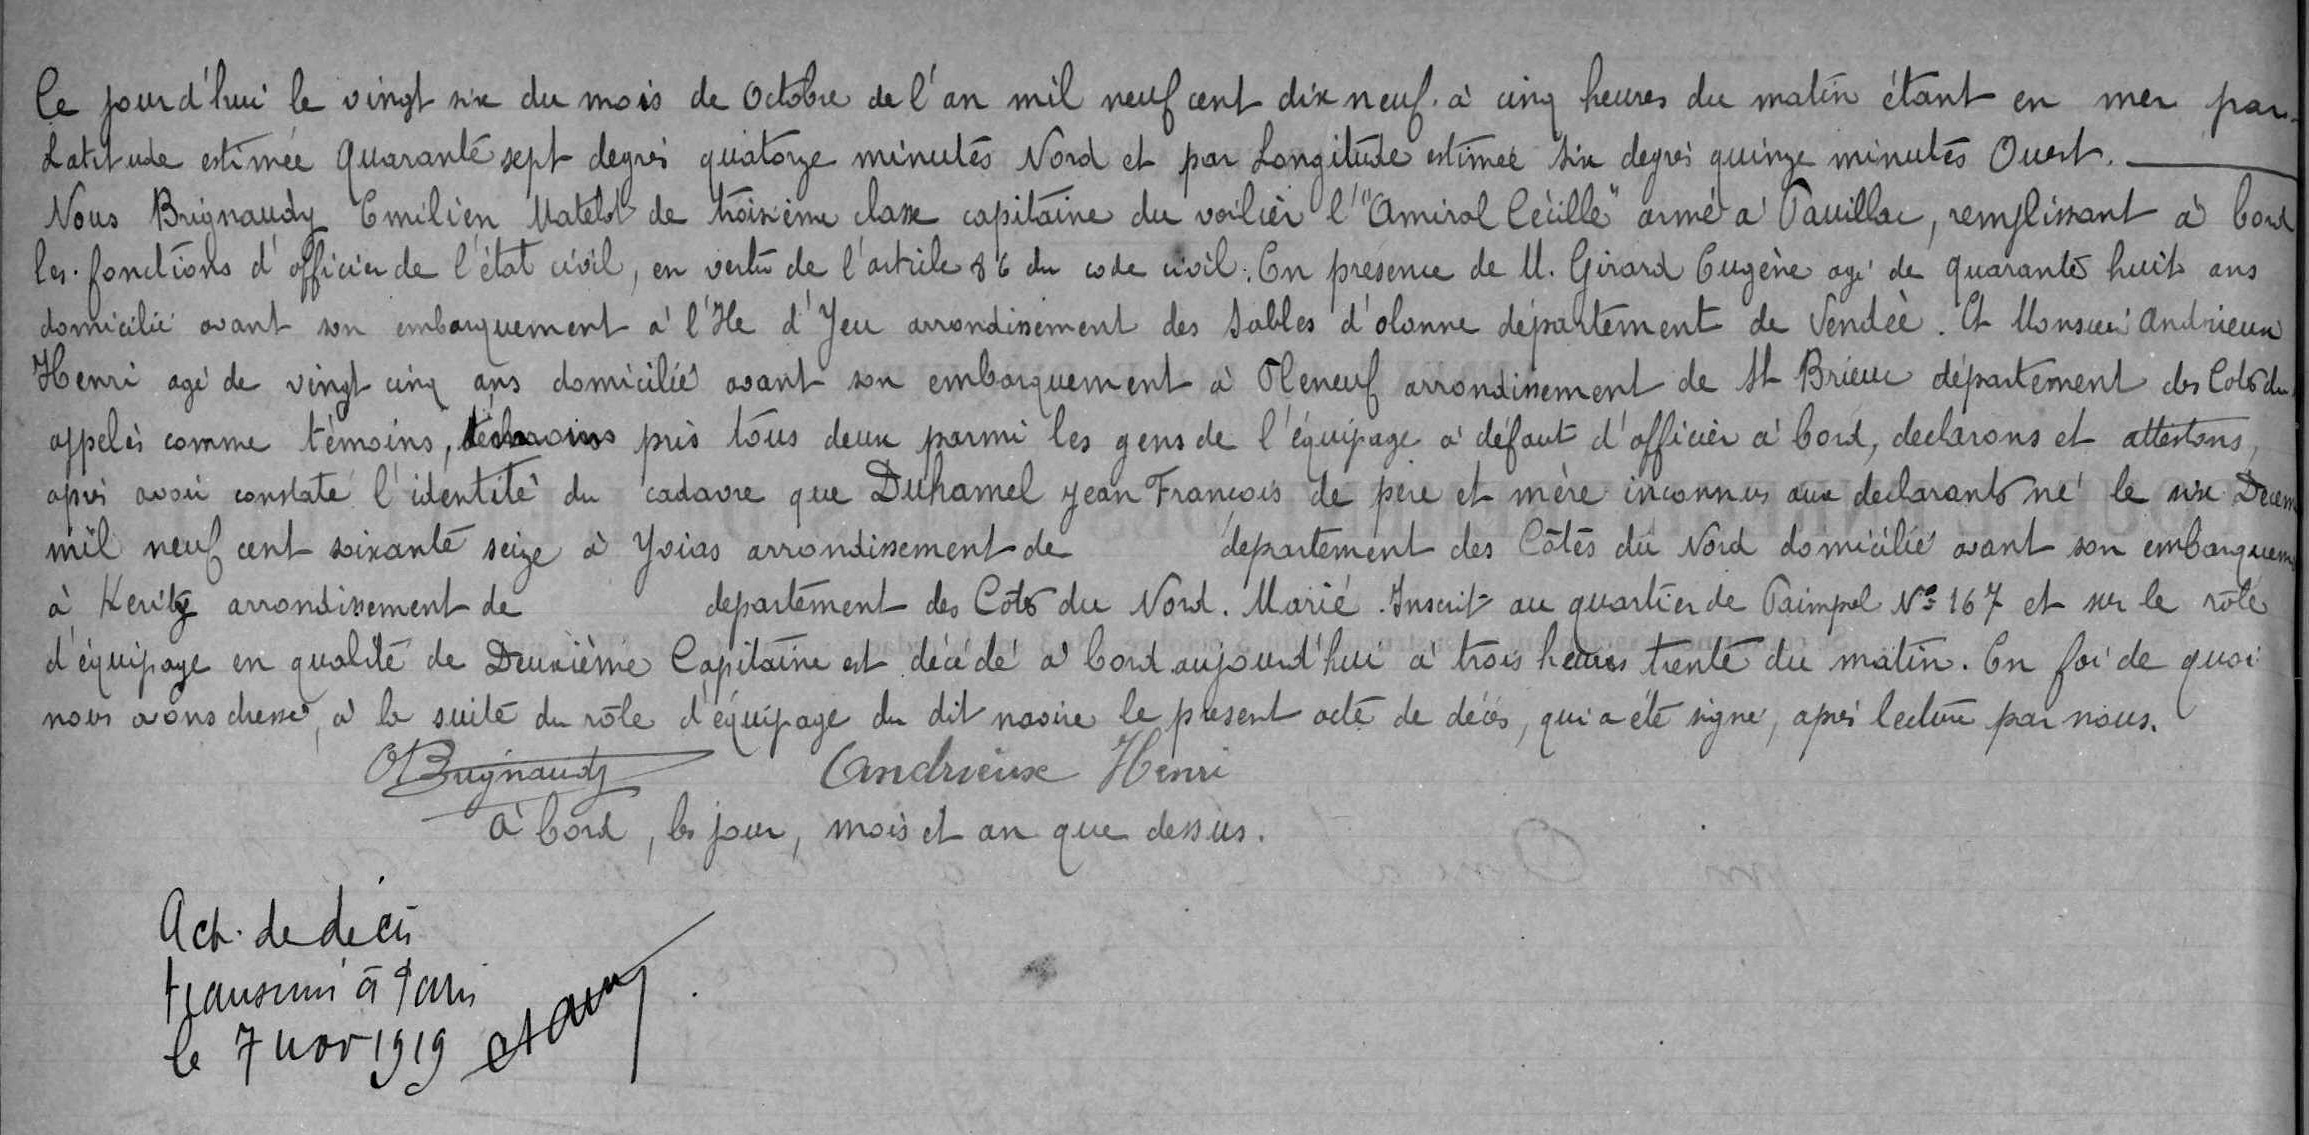 Ce jourd'hui le vingt six du mois de Octobre de l'an mil neuf cent dix neuf. à cinq heures du matin étant en mer par
Latitude estimée Quarante sept degrés quatorze minutes Nord et par Longitude estimée six degrés quinze minutes Ouest.
Nous Brignaudy Emilien Matelot de troisième classe capitaine du voilier l'"Amiral Cécille" armé à Pauillac, remplissant à bord
les fonctions d'officier de l'état civil, en vertu de l'article 86 du code civil. En présence de M. Girard Eugène agé de quarante huit ans
domicilié avant son embarquement à l'Ile d'Yeu arrondissement des Sables d'olonne département de Vendée. Et Monsieur Andrieux
Henri agé de vingt cinq ans domicilié avant son embarquement à Pleneuf arrondissement de St Brieuc département des Cots du
appelés comme témoins, pris tous deux parmi les gens de l'équipage à défaut d'officier à bord, declarons et attestons,
après avoir constaté l'identité du cadavre que Duhamel Jean François de père et mère inconnus aux declarants né le six Decem
mil neuf cent soixante seize à Yvias arrondissement de departement des Côtes du Nord domicilié avant son embarquem
à Kerity arrondissement de departement des Cots du Nord. Marié. Inscrit au quartier de Paimpol No 167 et sur le rôle
d'équipage en qualité de Deuxième Capitaine est décédé à bord aujourd'hui à trois heures trente du matin. En foi de quoi
nous avons dressé, à la suite du rôle d'équipage du dit navire le présent acte de décès, qui a été signé, après lecture par nous.
Brignaudy Andrieux Henri
à bord, les jour, mois et an que dessus.
Act. de décès
transmis à Paris
le 7 nov 1919